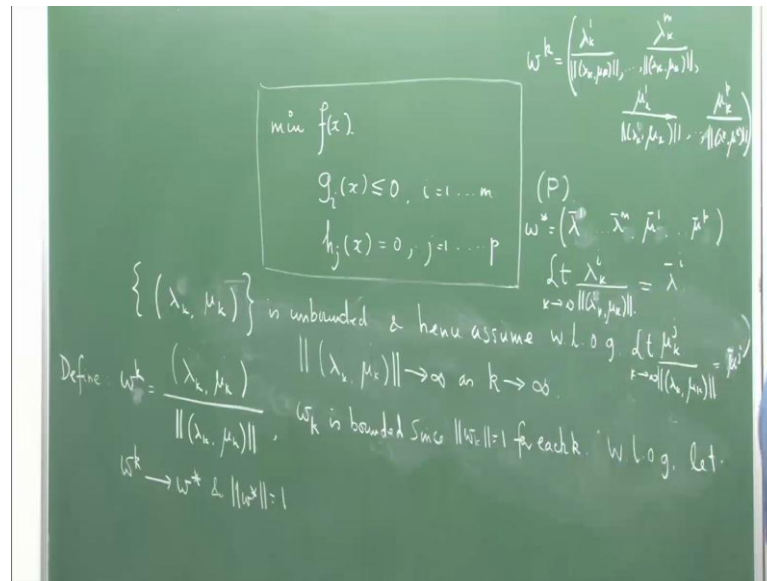 w^k = ( λ_k^1 / ||(λ_k, μ_k)||, ..., λ_k^m / ||(λ_k, μ_k)||,
μ_k^1 / ||(λ_k, μ_k)||, ... μ_k^p / ||(λ_k, μ_k)|| )
min f(x).
g_i(x) ≤ 0, i=1 ... m
(P)
h_j(x) = 0, j=1 .... p
w* = ( λ̄^1 ... λ̄^m, μ̄^1 ... μ̄^p )
Lt k→∞ λ_k^i / ||(λ_k, μ_k)|| = λ̄^i
{ (λ_k, μ_k) } is unbounded & henu assume w l o g. Lt k→∞ μ_k^j / ||(λ_k, μ_k)|| = μ̄^j
|| (λ_k, μ_k) || → ∞ as k → ∞.
Define. w^k = (λ_k, μ_k) / || (λ_k, μ_k) ||, w_k is bounded since ||w_k|| = 1 for each k. W l o g, let
w^k → w* & ||w*|| = 1